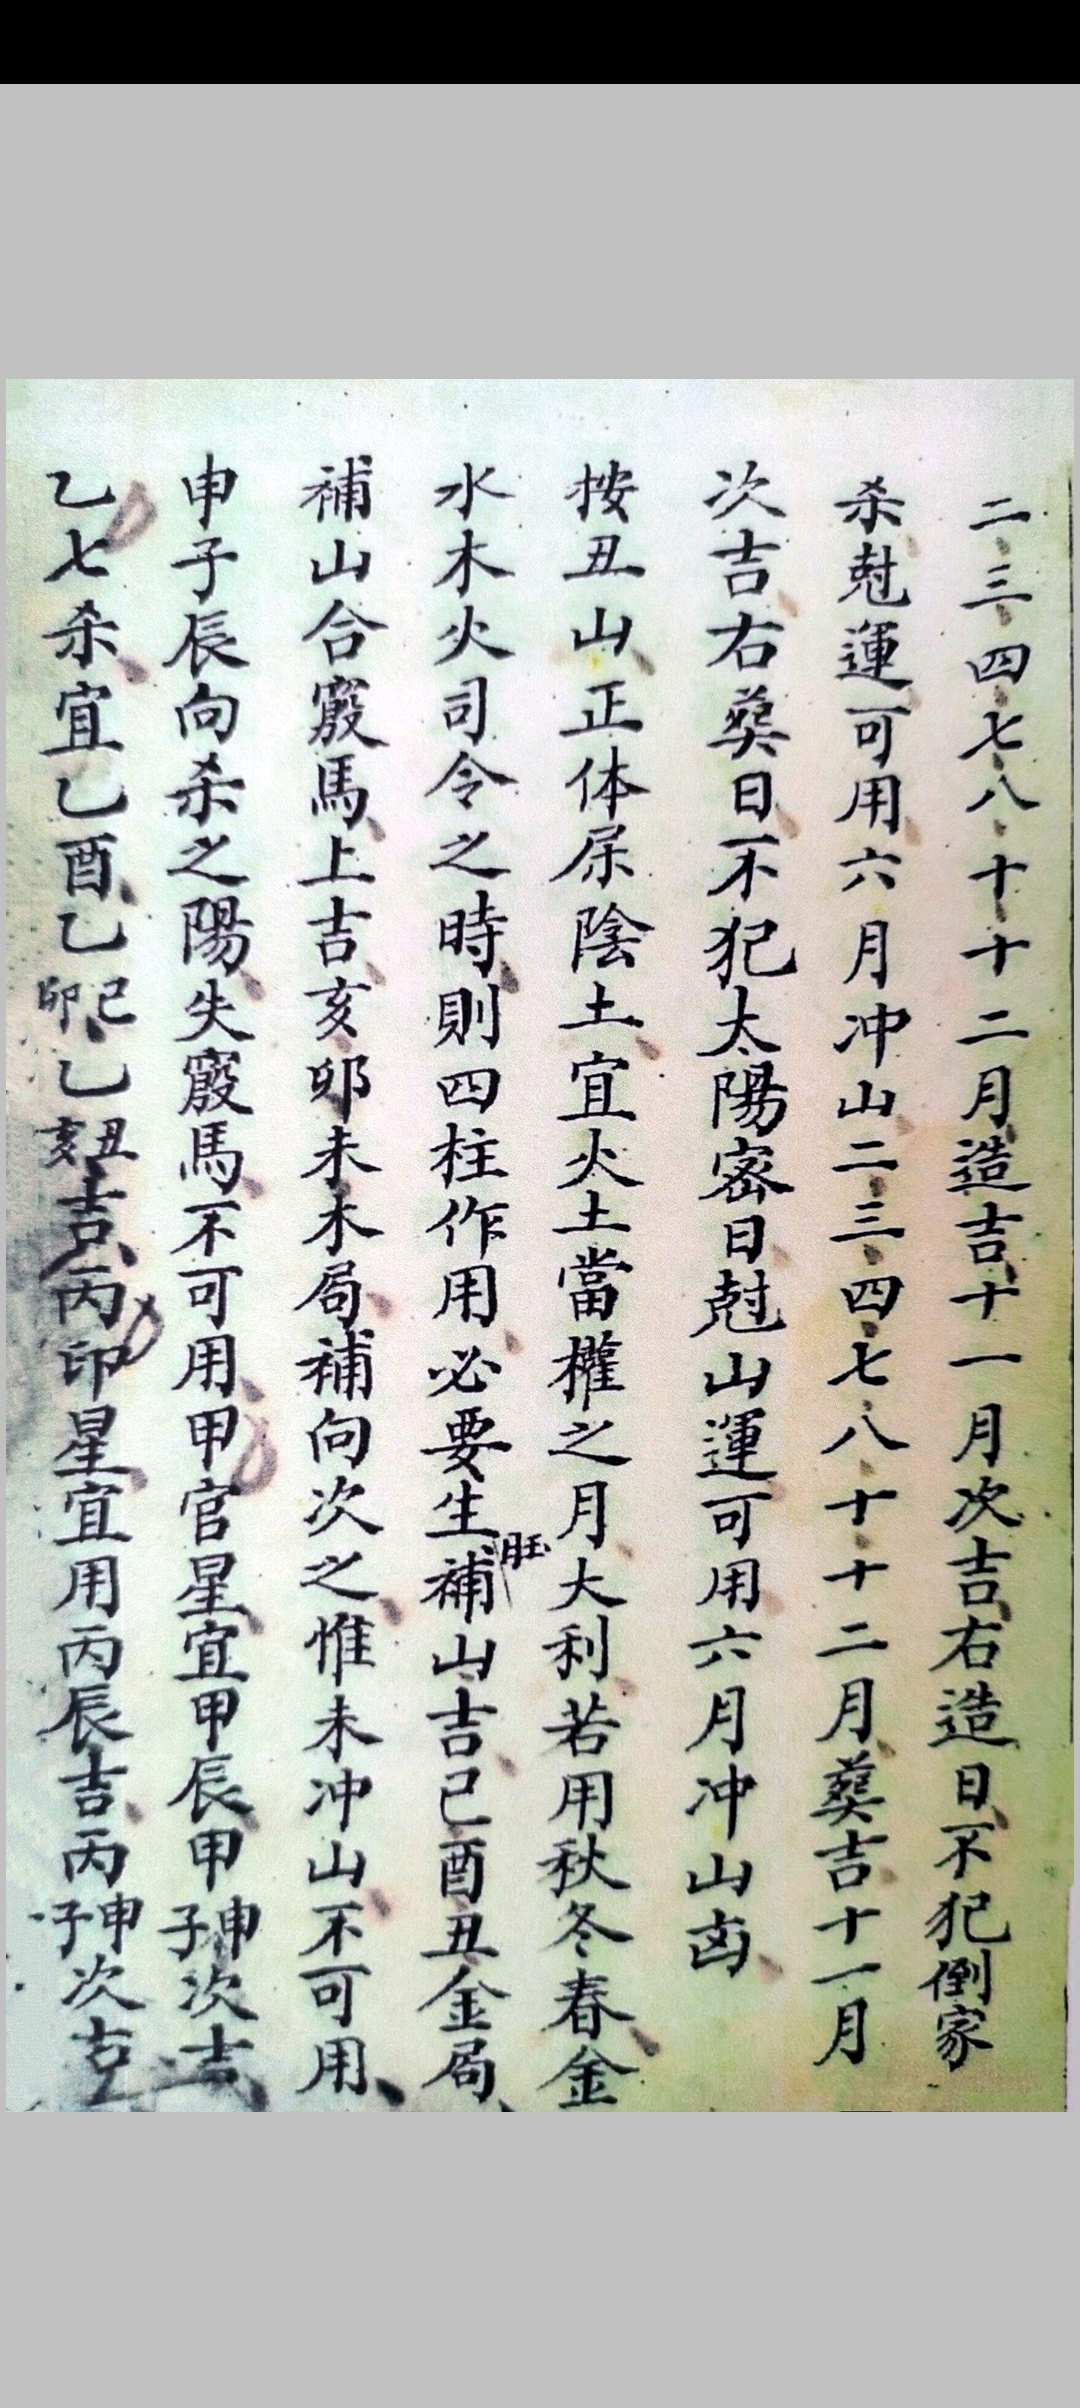 二三四七八十十二月造吉十一月次吉右造日不犯倒家
杀尅運可用六月冲山二三四七八十十二月葬吉十一月
次吉右葬日不犯太陽密日尅山運可用六月冲山凶
按丑山正体属陰土宜火土當權之月大利若用秋冬春金
水木火司令之時則四柱作用必要生旺補山吉巳酉丑金局
補山合竅馬上吉亥卯未木局補向次之惟未冲山不可用
申子辰向杀之陽失竅馬不可用甲官星宜甲辰甲申子次吉
乙七杀宜乙酉乙巳卯乙丑亥吉丙印星宜用丙辰吉丙申子次吉